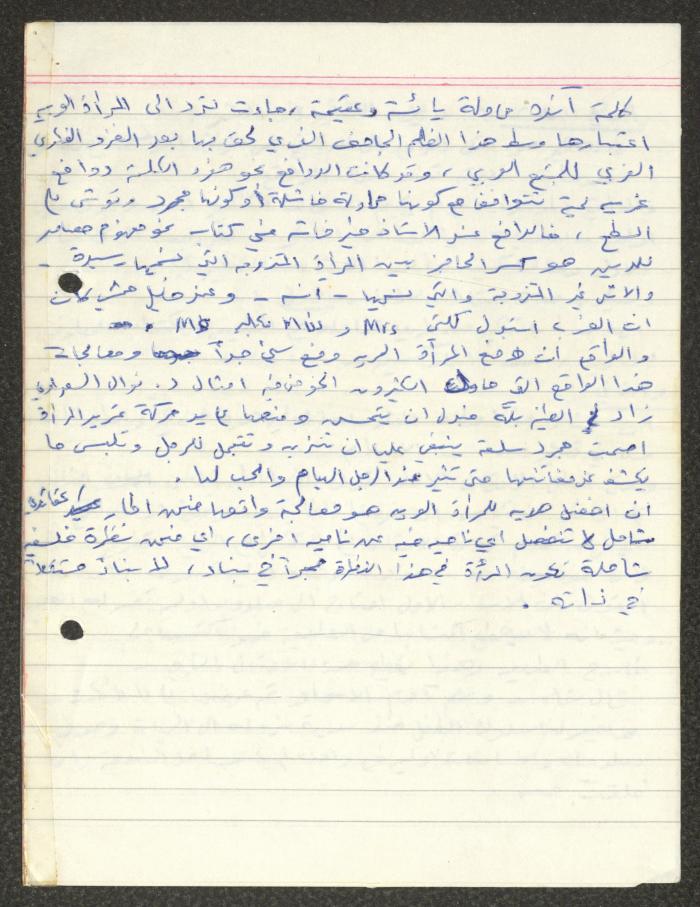 كلمة آنسه محاولة يائسة وعقيمة، جاءت لترد الى المرأة العربيه
اعتبارها وسط هذا الظلم الجاحف الذي لحق بها بعد الغزو الفكري
الغربي للمجتمع العربي، وقد كانت الدوافع نحو هذه الكلمة دوافع
غريبه لمة تتوافق مع كونها محاولة فاشلة أو كونها مجرد على
السطح، فالدافع عند الاستاذ في كتاب نحو مفهوم معاصر
للدين هو كسر الحاجز بين المرأة المتزوجه التي نسميها سيدة -
والانثى غير المتزوجة والتي نسميها - انسه - وعند خليل كان
ان الغرب استبدل كلمتي Mrs و Miss بكلمه Ms.
والواقع ان وضع المرأة العربيه وضع سيء جداً ومعالجات
هذا الواقع التي حاول الكثيرون الخوض فيه امثال د. نوال السعداوي
زاد الطين بلة فبدل ان يتحسن وضعها على يد حركة تحرير المرأة
اصبحت مجرد سلعة ينبغي عليها ان تتزين وتتجمل للرجل وتلبس ما
يكشف عن مفاتنها حتى تثير عند الرجل الهيام والحب لها.
ان افضل هديه للمرأة العربيه هو معالجة واقعها ضمن اطار عقائدي
شامل لا تنفصل اي ناحيه فيه عن ناحيه اخرى، اي ضمن نظرة فلسفيه
شاملة تكون المرأة في هذا النظرة حجراً في بناء، لا بناءً مستقلاً
في ذاته.